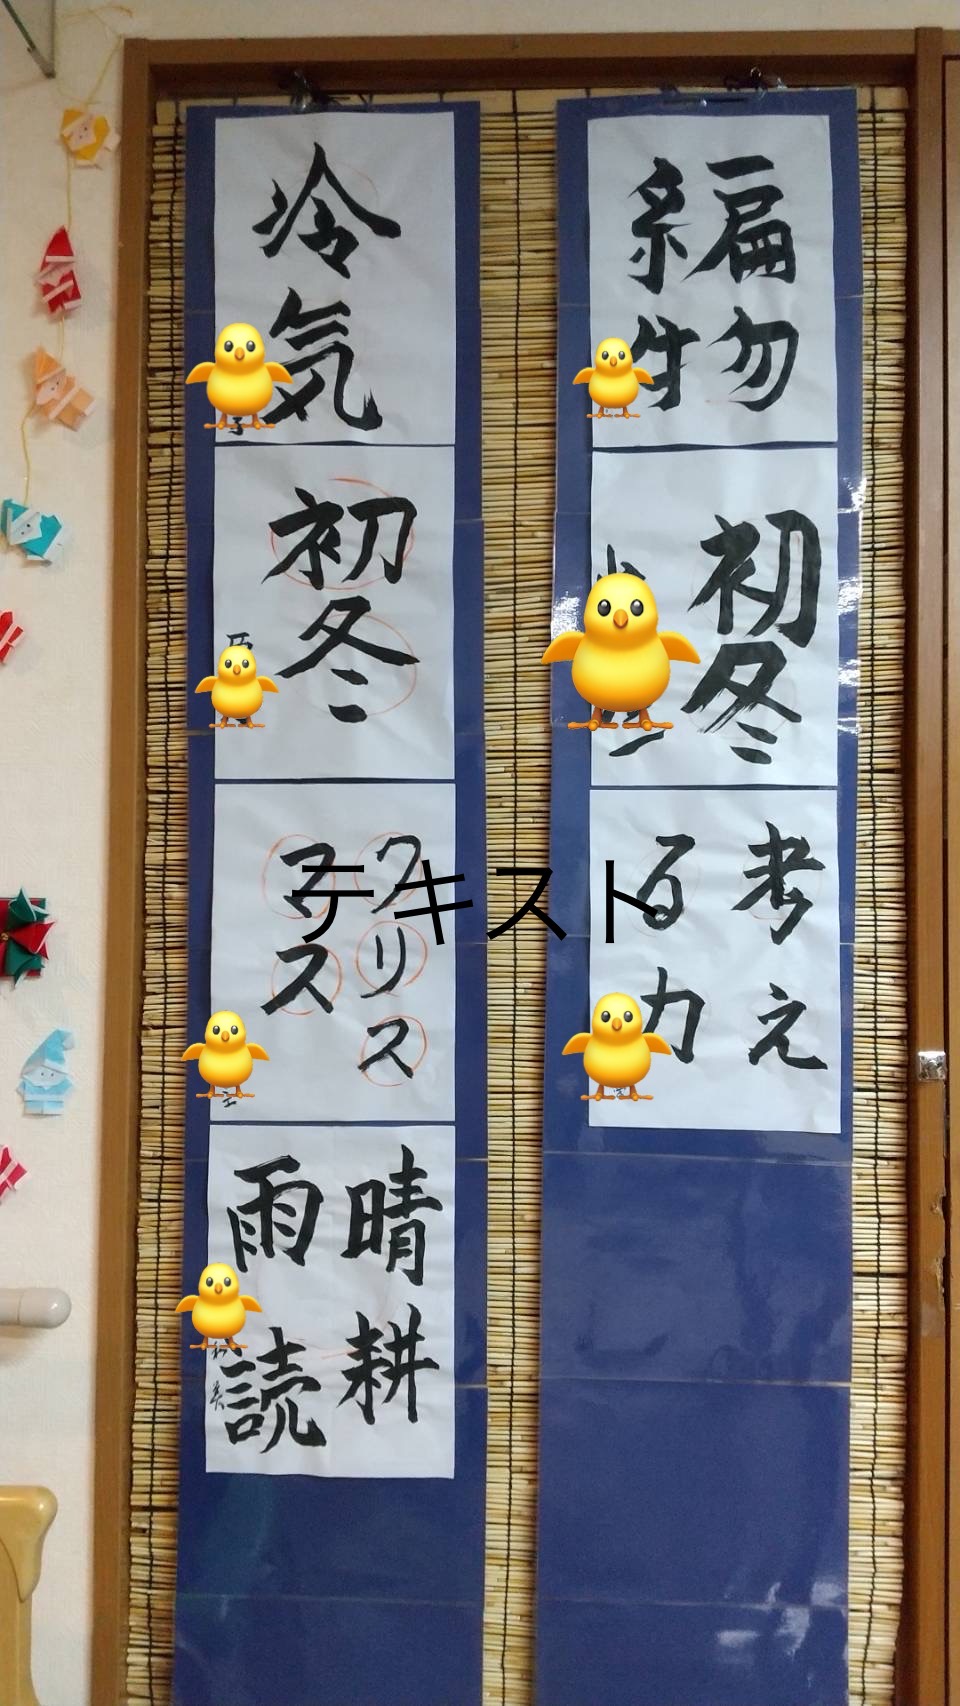 編物
初冬
考え
る力
冷気
初冬
クリス
マス
晴耕
雨読
テキスト